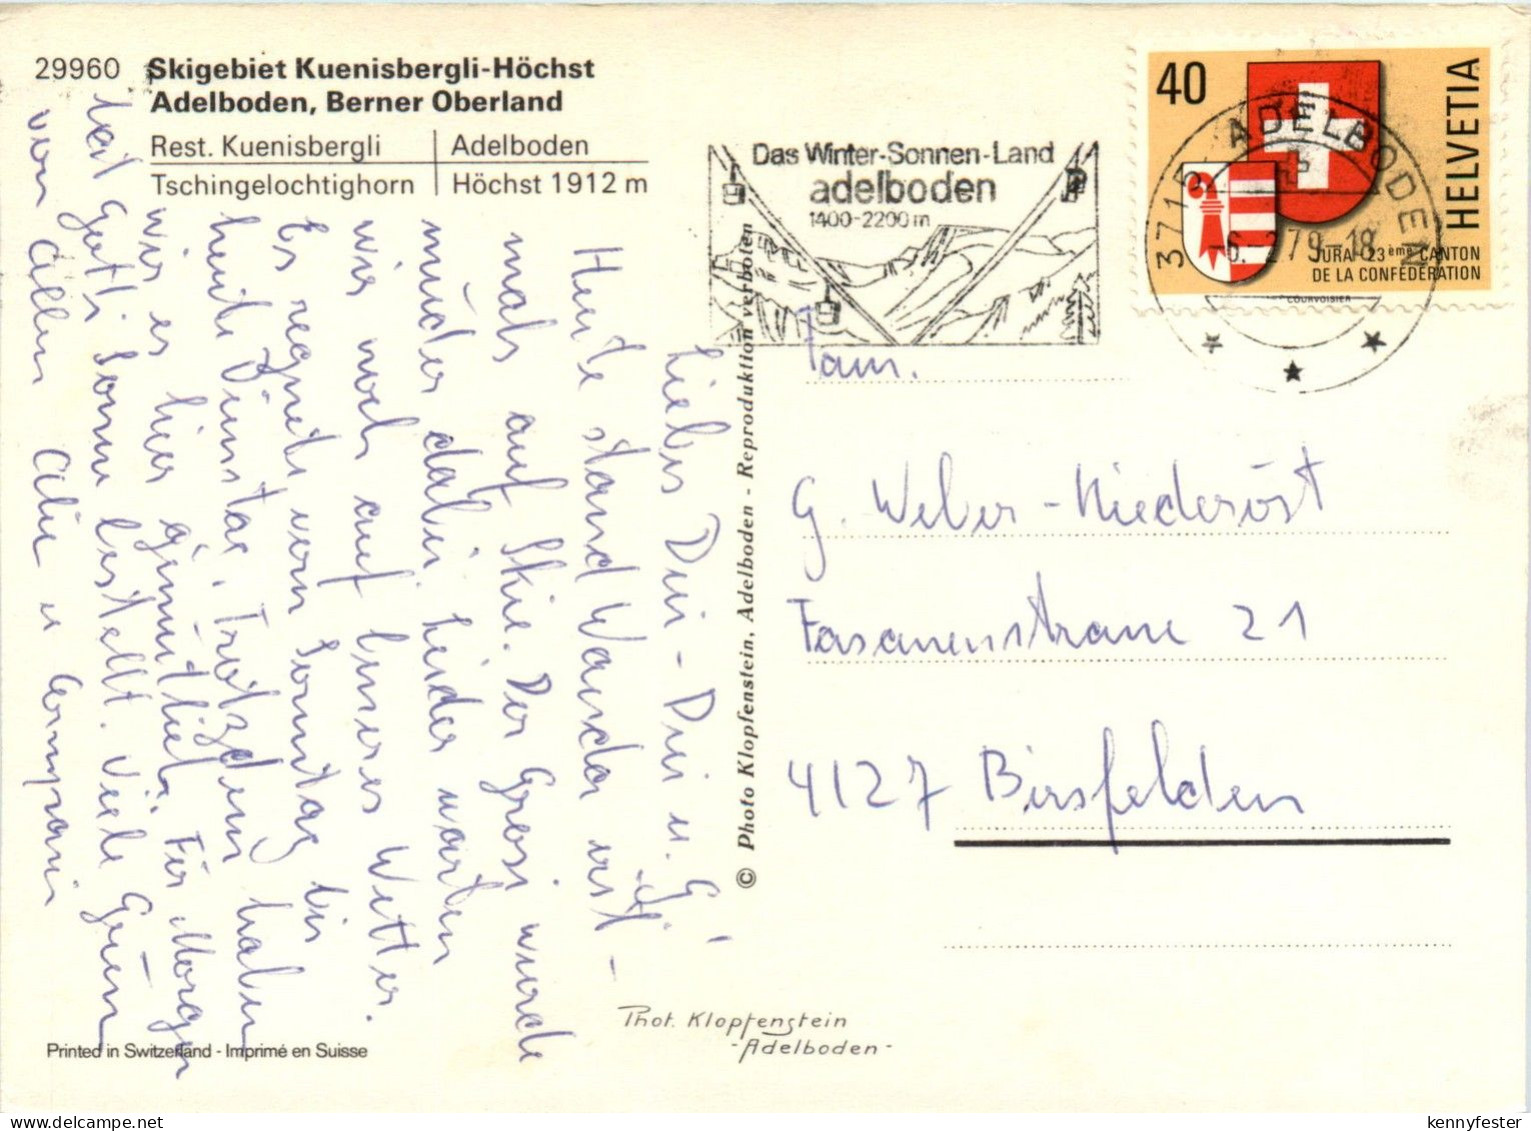 29960 Skigebiet Kuenisbergli-Höchst
Adelboden, Berner Oberland
Rest. Kuenisbergli | Adelboden
Tschingelochtighorn | Höchst 1912 m
Das Winter-Sonnen-Land
adelboden
1400-2200 m
3715 ADELBODEN
-6.-2.79-18
40
HELVETIA
JURA 23ème CANTON
DE LA CONFÉDÉRATION
COURVOISIER
Liebes Dui-Dui u. G.!
Heute stand Wanda erst-
mals auf Skie. Der Grosi wurde
müder dabei. Leider warten
wir noch auf besseres Wetter.
Es regnete von Sonntag bis
heute Dienstag. Trotzdem haben
wir es hier gemütlich. Für Morgen
hat Gott Sonne bestellt. Viele Grüsse
von Allen
© Photo Klopfenstein, Adelboden - Reproduktion verboten
Fam.
G. Weber-Niederöst
Fasanenstrasse 21
4127 Birsfelden
Phot. Klopfenstein
-Adelboden-
Printed in Switzerland - Imprimé en Suisse
kennyfester